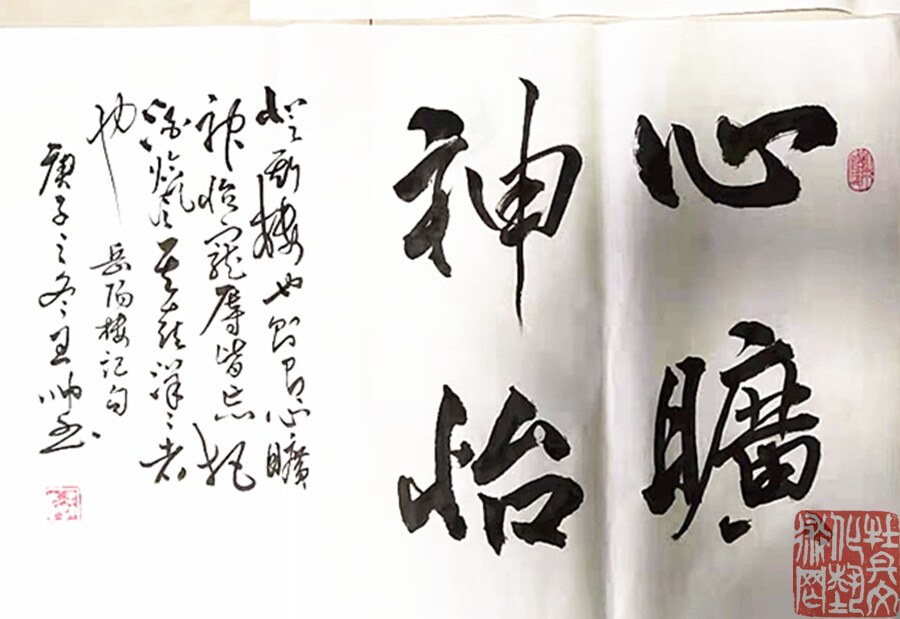 心曠
神怡
登斯樓也則有心曠
神怡寵辱皆忘把
酒臨風其喜洋〻者
也
岳陽樓記句
庚子之冬王帥書